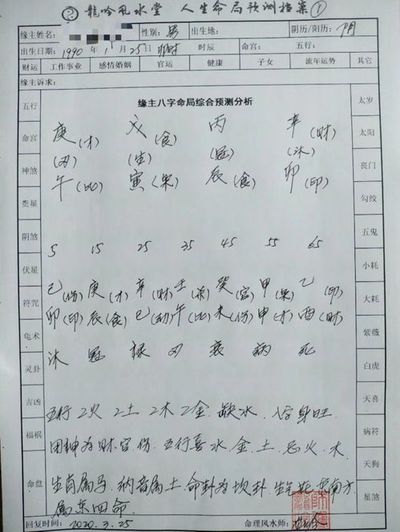 ② 龍吟風水堂 人生命局預測档案①
缘主姓名: 性别 男 出生地: 阴历/阳历:
出生日期: 1990年1月25日卯时 时辰: 命宫: 五行:
财运 工作事业 感情婚姻 官运 健康 子女 流年运势
缘主诉求:
缘主八字命局综合预测分析
五行
命宫
神煞
贵星
阴煞
伏星
符咒
龟术
灵卦
吉凶
福祸
命盘
庚(才) 戊(食) 丙 辛(财)
(刃) (生) (冠) (沐)
午(比) 寅(枭) 辰(食) 卯(印)
5 15 25 35 45 55 65
己(伤) 庚(才) 辛(财) 壬(杀) 癸(官) 甲(枭) 乙(印)
卯(印) 辰(食) 巳(劫) 午(比) 未(伤) 申(才) 酉(财)
沐 冠 禄 刃 衰 病 死
五行 2火 2土 2木 2金 缺水. 八字身旺
用神为财官伤. 五行喜水金土 忌火木
生肖属马 纳音属土 命卦为坎卦 东南方
属东四命
太岁
太阳
丧门
勾绞
五鬼
小耗
大耗
紫薇
白虎
天喜
病符
天狗
星煞
回复时间: 2020.3.25 命理风水师: